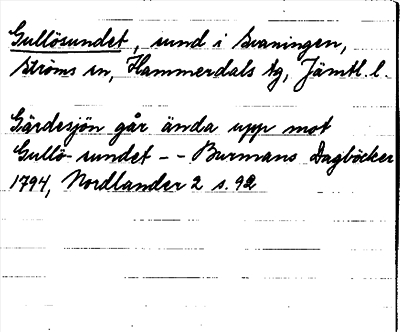 Gullösundet, sund i Svaningen,
Ströms sn, Hammerdals tg, Jämtl. l.
Gärdesjön går ända upp mot
Gullö-sundet -- Burmans Dagböcker
1794, Nordlander 2 s. 92